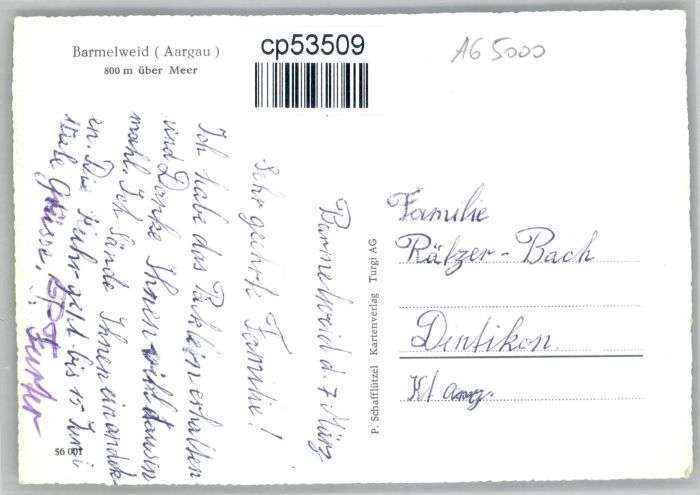 Barmelweid ( Aargau )
800 m über Meer
cp53509
AG 5000
Barmelweid d. 7 März
Sehr geehrte Familie!
Ich habe das Päklein erhalten
und Danke Ihnen viel tausin
mahl. Ich Sände Ihnen ein andek
en. Die Kuhr geht bis 15 Juni
viele Grüsse,
Furter
P. Schafflützel Kartenverlag Turgi AG
Familie
Rätzer - Bach
Dintikon.
Kt Aarg.
56 001